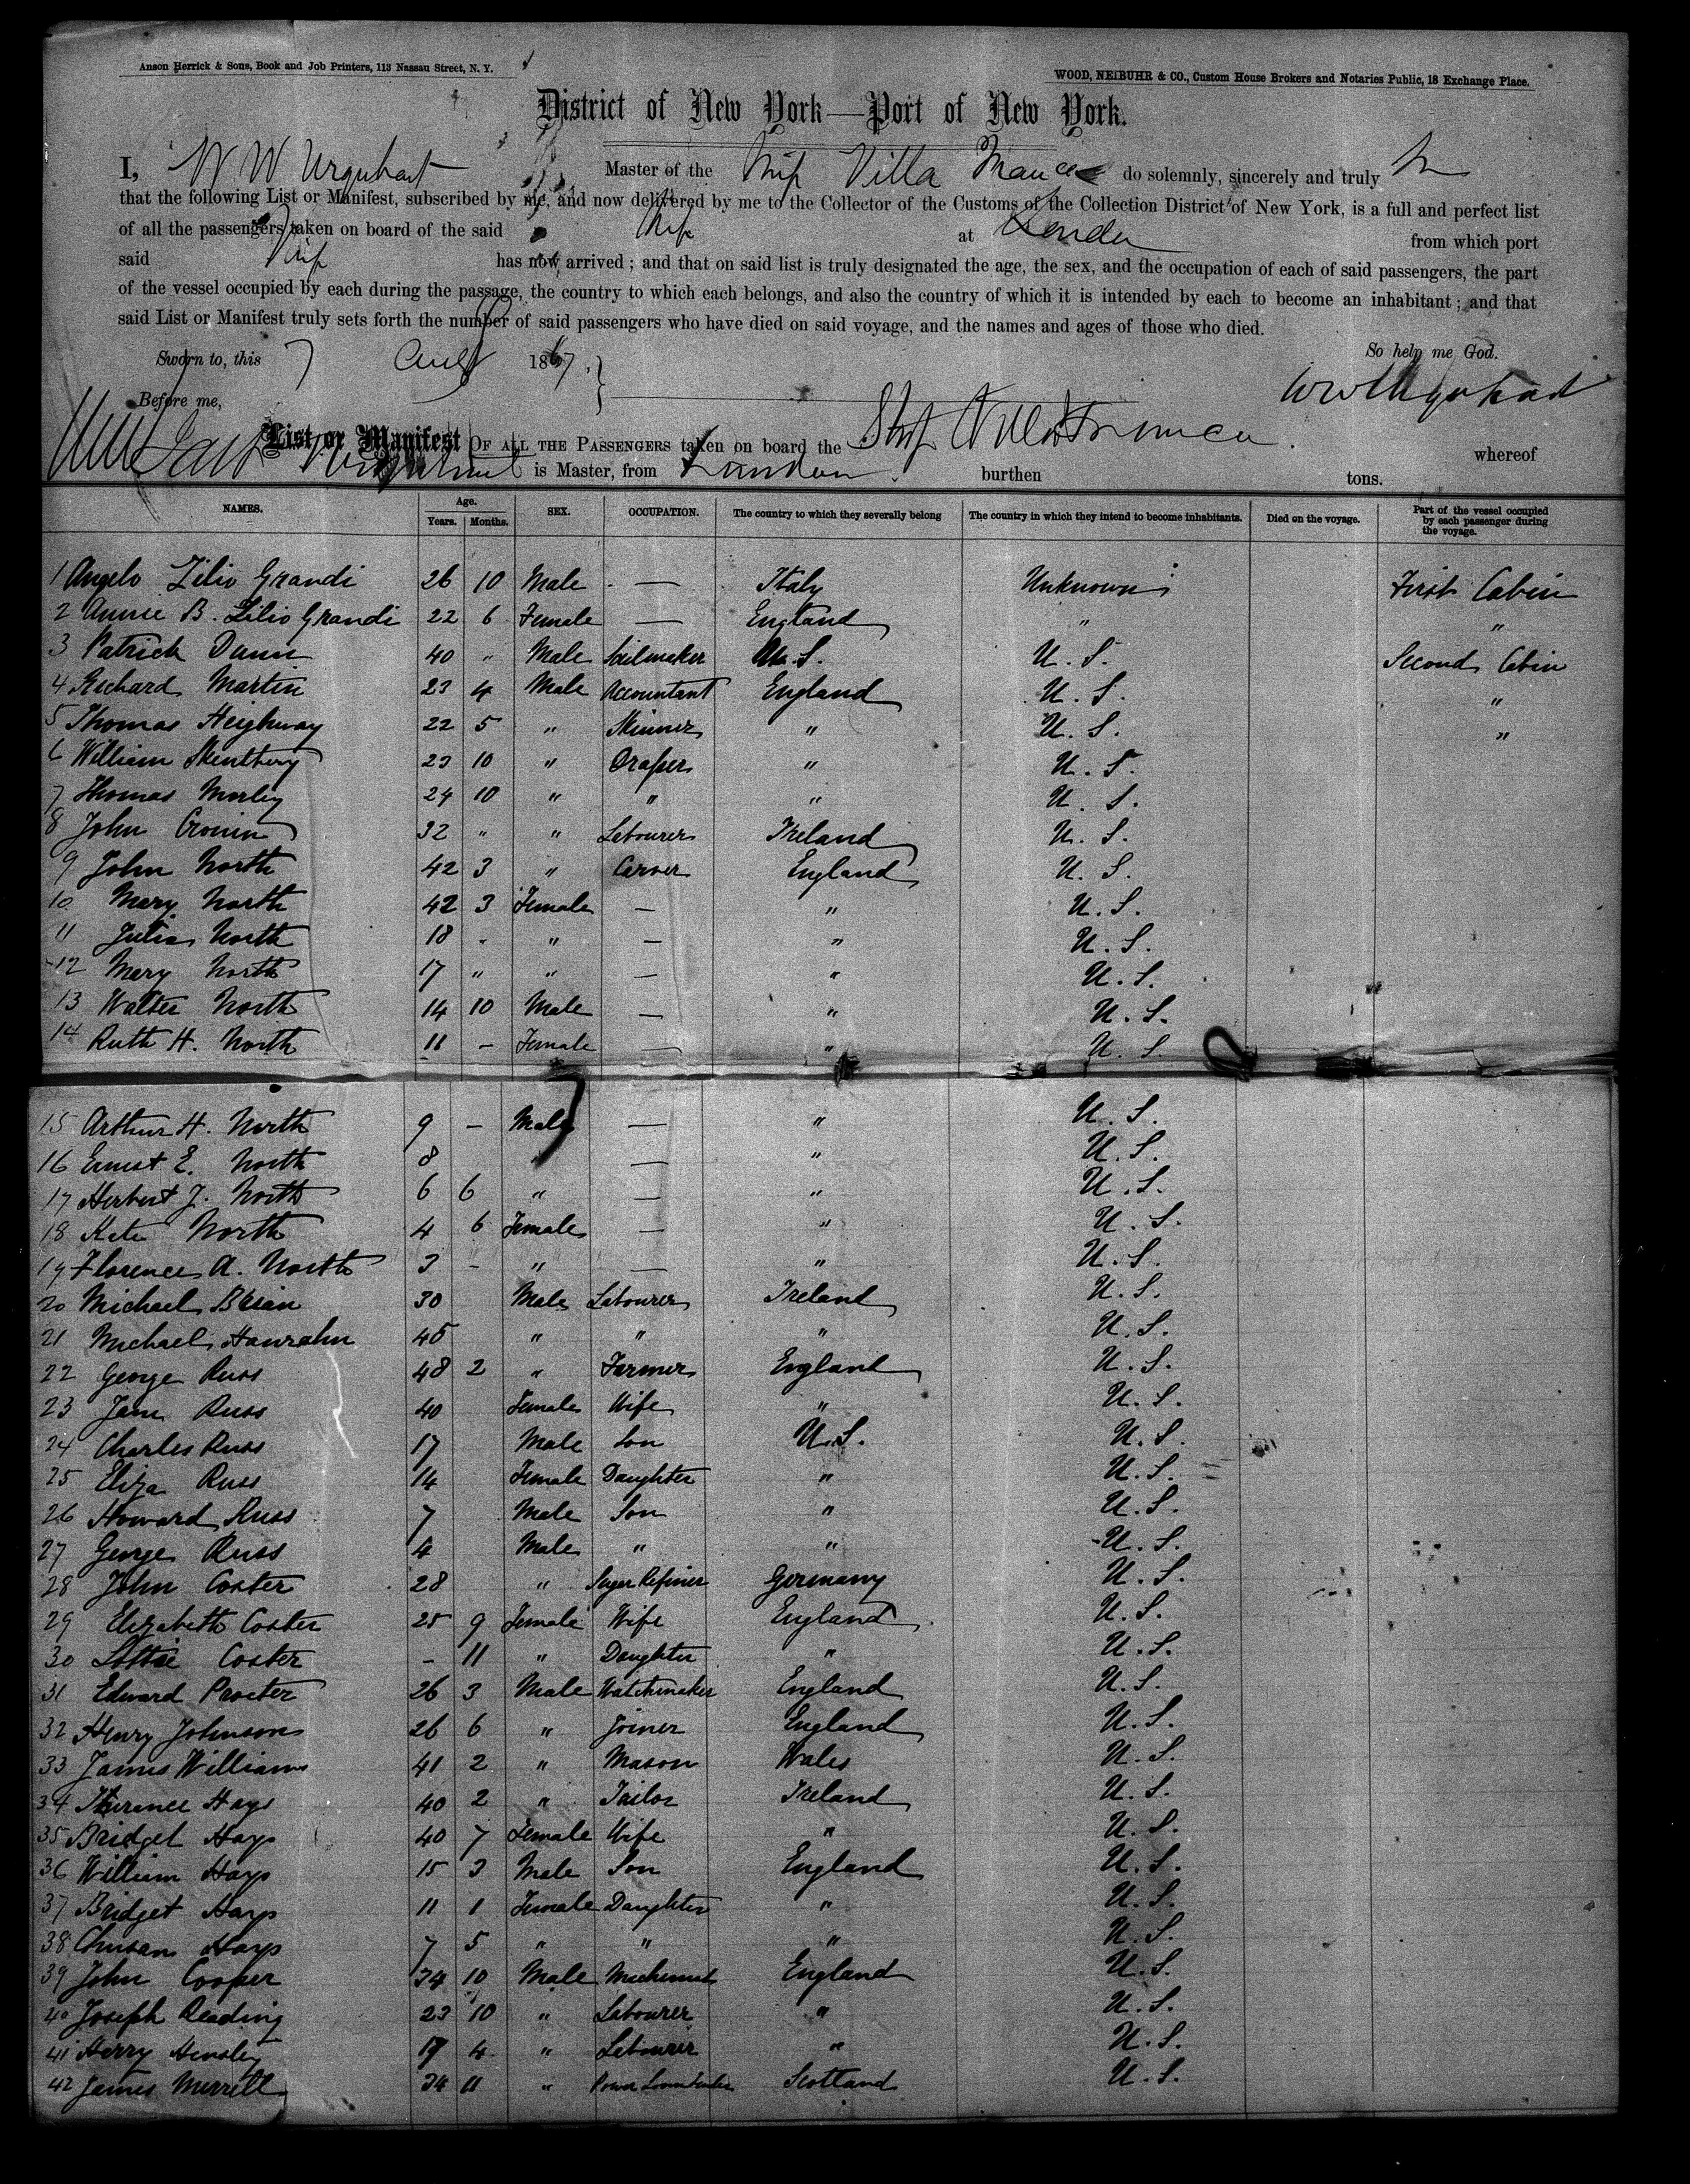 Anson Herrick & Sons, Book and Job Printers, 113 Nassau Street, N. Y.
WOOD, NEIBUHR & CO., Custom House Brokers and Notaries Public, 18 Exchange Place.
District of New York—Port of New York.
I, W W Urquhart Master of the Ship Villa Franca do solemnly, sincerely and truly
that the following List or Manifest, subscribed by me, and now delivered by me to the Collector of the Customs of the Collection District of New York, is a full and perfect list
of all the passengers taken on board of the said Ship at London from which port
said Ship has now arrived; and that on said list is truly designated the age, the sex, and the occupation of each of said passengers, the part
of the vessel occupied by each during the passage, the country to which each belongs, and also the country of which it is intended by each to become an inhabitant; and that
said List or Manifest truly sets forth the number of said passengers who have died on said voyage, and the names and ages of those who died.
Sworn to, this 7 Aug 1867. So help me God.
Before me, W W Urquhart
List or Manifest OF ALL THE PASSENGERS taken on board the Ship Villa Franca whereof
Urquhart is Master, from London burthen tons.
NAMES. Age. Years. Months. SEX. OCCUPATION. The country to which they severally belong The country in which they intend to become inhabitants. Died on the voyage. Part of the vessel occupied by each passenger during the voyage.
1 Angelo Zilio Grandi 26 10 Male — Italy Unknown First Cabin
2 Annie B. Zilio Grandi 22 6 Female — England " "
3 Patrick Dunn 40 " Male Sailmaker U. S. U. S. Second Cabin
4 Richard Martin 23 4 Male Accountant England U. S. "
5 Thomas Heighway 22 5 " Skinner " U. S. "
6 William 23 10 " Draper " U. S.
7 Thomas Morley 24 10 " " " U. S.
8 John Cronin 32 " " Labourer Ireland U. S.
9 John North 42 3 " Carver England U. S.
10 Mary North 42 3 Female — " U. S.
11 Julia North 18 - " — " U. S.
12 Mary North 17 " " — " U. S.
13 Walter North 14 10 Male — " U. S.
14 Ruth H. North 11 - Female — " U. S.
15 Arthur H. North 9 - Male — " U. S.
16 Ernest E. North 8 " — " U. S.
17 Herbert J. North 6 6 " — " U. S.
18 Kate North 4 6 Female — " U. S.
19 Florence A. North 3 - " — " U. S.
20 Michael Brian 30 Male Labourer Ireland U. S.
21 Michael Hanrahn 45 " " " U. S.
22 George Russ 48 2 " Farmer England U. S.
23 Jane Russ 40 Female Wife " U. S.
24 Charles Russ 17 Male Son U. S. U. S.
25 Eliza Russ 14 Female Daughter " U. S.
26 Howard Russ 7 Male Son " U. S.
27 George Russ 4 Male " " U. S.
28 John Coster 28 " Sugar Refiner Germany U. S.
29 Elizabeth Coster 25 9 Female Wife England U. S.
30 Lottie Coster - 11 " Daughter " U. S.
31 Edward Procter 26 3 Male Watchmaker England U. S.
32 Henry Johnson 26 6 " Joiner England U. S.
33 James Williams 41 2 " Mason Wales U. S.
34 Thurence Hays 40 2 " Tailor Ireland U. S.
35 Bridget Hays 40 7 Female Wife " U. S.
36 William Hays 15 3 Male Son England U. S.
37 Bridget Hays 11 1 Female Daughter " U. S.
38 Hays 7 5 " " " U. S.
39 John Cooper 34 10 Male England U. S.
40 Joseph Reading 23 10 " Labourer " U. S.
41 Harry Hensley 19 4 " Labourer " U. S.
42 James Merrell 34 11 " Power Loom Scotland U. S.